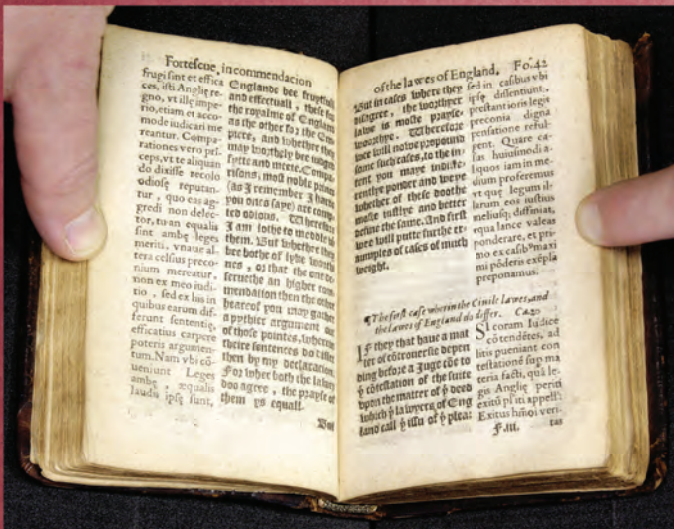 Fortescue, in commendacion
frugi sint et effica
ces, isti Anglię re-
gno, vt ille impe-
rio, etiam et acco-
mode iudicari me
reantur. Compa-
rationes vero prī-
ceps, vt te aliquan
do dixisse recolo
odiosę reputan-
tur, quo eas ag-
gredi non delec-
tor, tu an equalis
sint ambę leges
meriti, vnaue al-
tera celsius preco-
nium mereatur,
non ex meo iudi-
tio, sed ex his in
quibus earum dif-
ferunt sententię,
efficatius carpere
poteris argumen-
tum. Nam vbi cō-
ueniunt Leges
ambę, æqualis
laudis ipsę sunt,
Englande bee fruytfull
and effectuall, these for
the royalme of Englande
as the other for the Em-
piere, and whether they
may worthely bee iudged
fytte and meete. Compa-
risons, most noble prince
(as I remember I harde
you once saye) are comp-
ted odious. Wherefore
I am lothe to meddle in
them. But whether they
bee bothe of lyke worthi
nes, or that the one de-
serueth an higher com-
mendation then the other
heareof you may gather
a pythier argument out
of those pointes, wherein
theire sentences do differ
then by my declaration.
For wher both the lawes
doo agree, the prayse of
them ys equall.
But
of the lawes of England. Fo. 42
But in cases where they
disagree, the worthyer
lawe is moste prayse-
woorthye. Wherefore
wee will nowe propound
some such cases, to the in-
tent you maye indiffe-
rentlye ponder and weye
whether of these doothe
moste iustlye and better
define the same. And first
wee will putte furthe ex-
aumples of cases of much
weight.
sed in casibus vbi
ipsę dissentiunt,
prestantioris legis
preconia digna
pensatione reful-
gent. Quare ca-
sus huiusmodi a-
liquos iam in me-
dium proferemus
vt quę legum il-
larum eos iustius
meliusq; diffiniat,
equa lance valeas
ponderare, et pri-
mo ex casibꝰ maxi
mi pōderis exēpla
preponamus.
¶ The first case wherin the Ciuile lawes, and
the lawes of England do differ. Ca. 20
If they that haue a mat
ter of cōtrouersie depen
ding before a Juge cōe to
ẏ cōtestation of the suite
vpon the matter of ẏ deed
which ẏ lawyers of Eng
land call ẏ issu of ẏ plea:
SI coram Iudice
cōtendētes, ad
litis pueniant con
testationē sup ma
teria facti, quā le-
gis Anglię periti
exitū pliti appell̄t
Exitus hm̄oi veri-
F.iii. tas